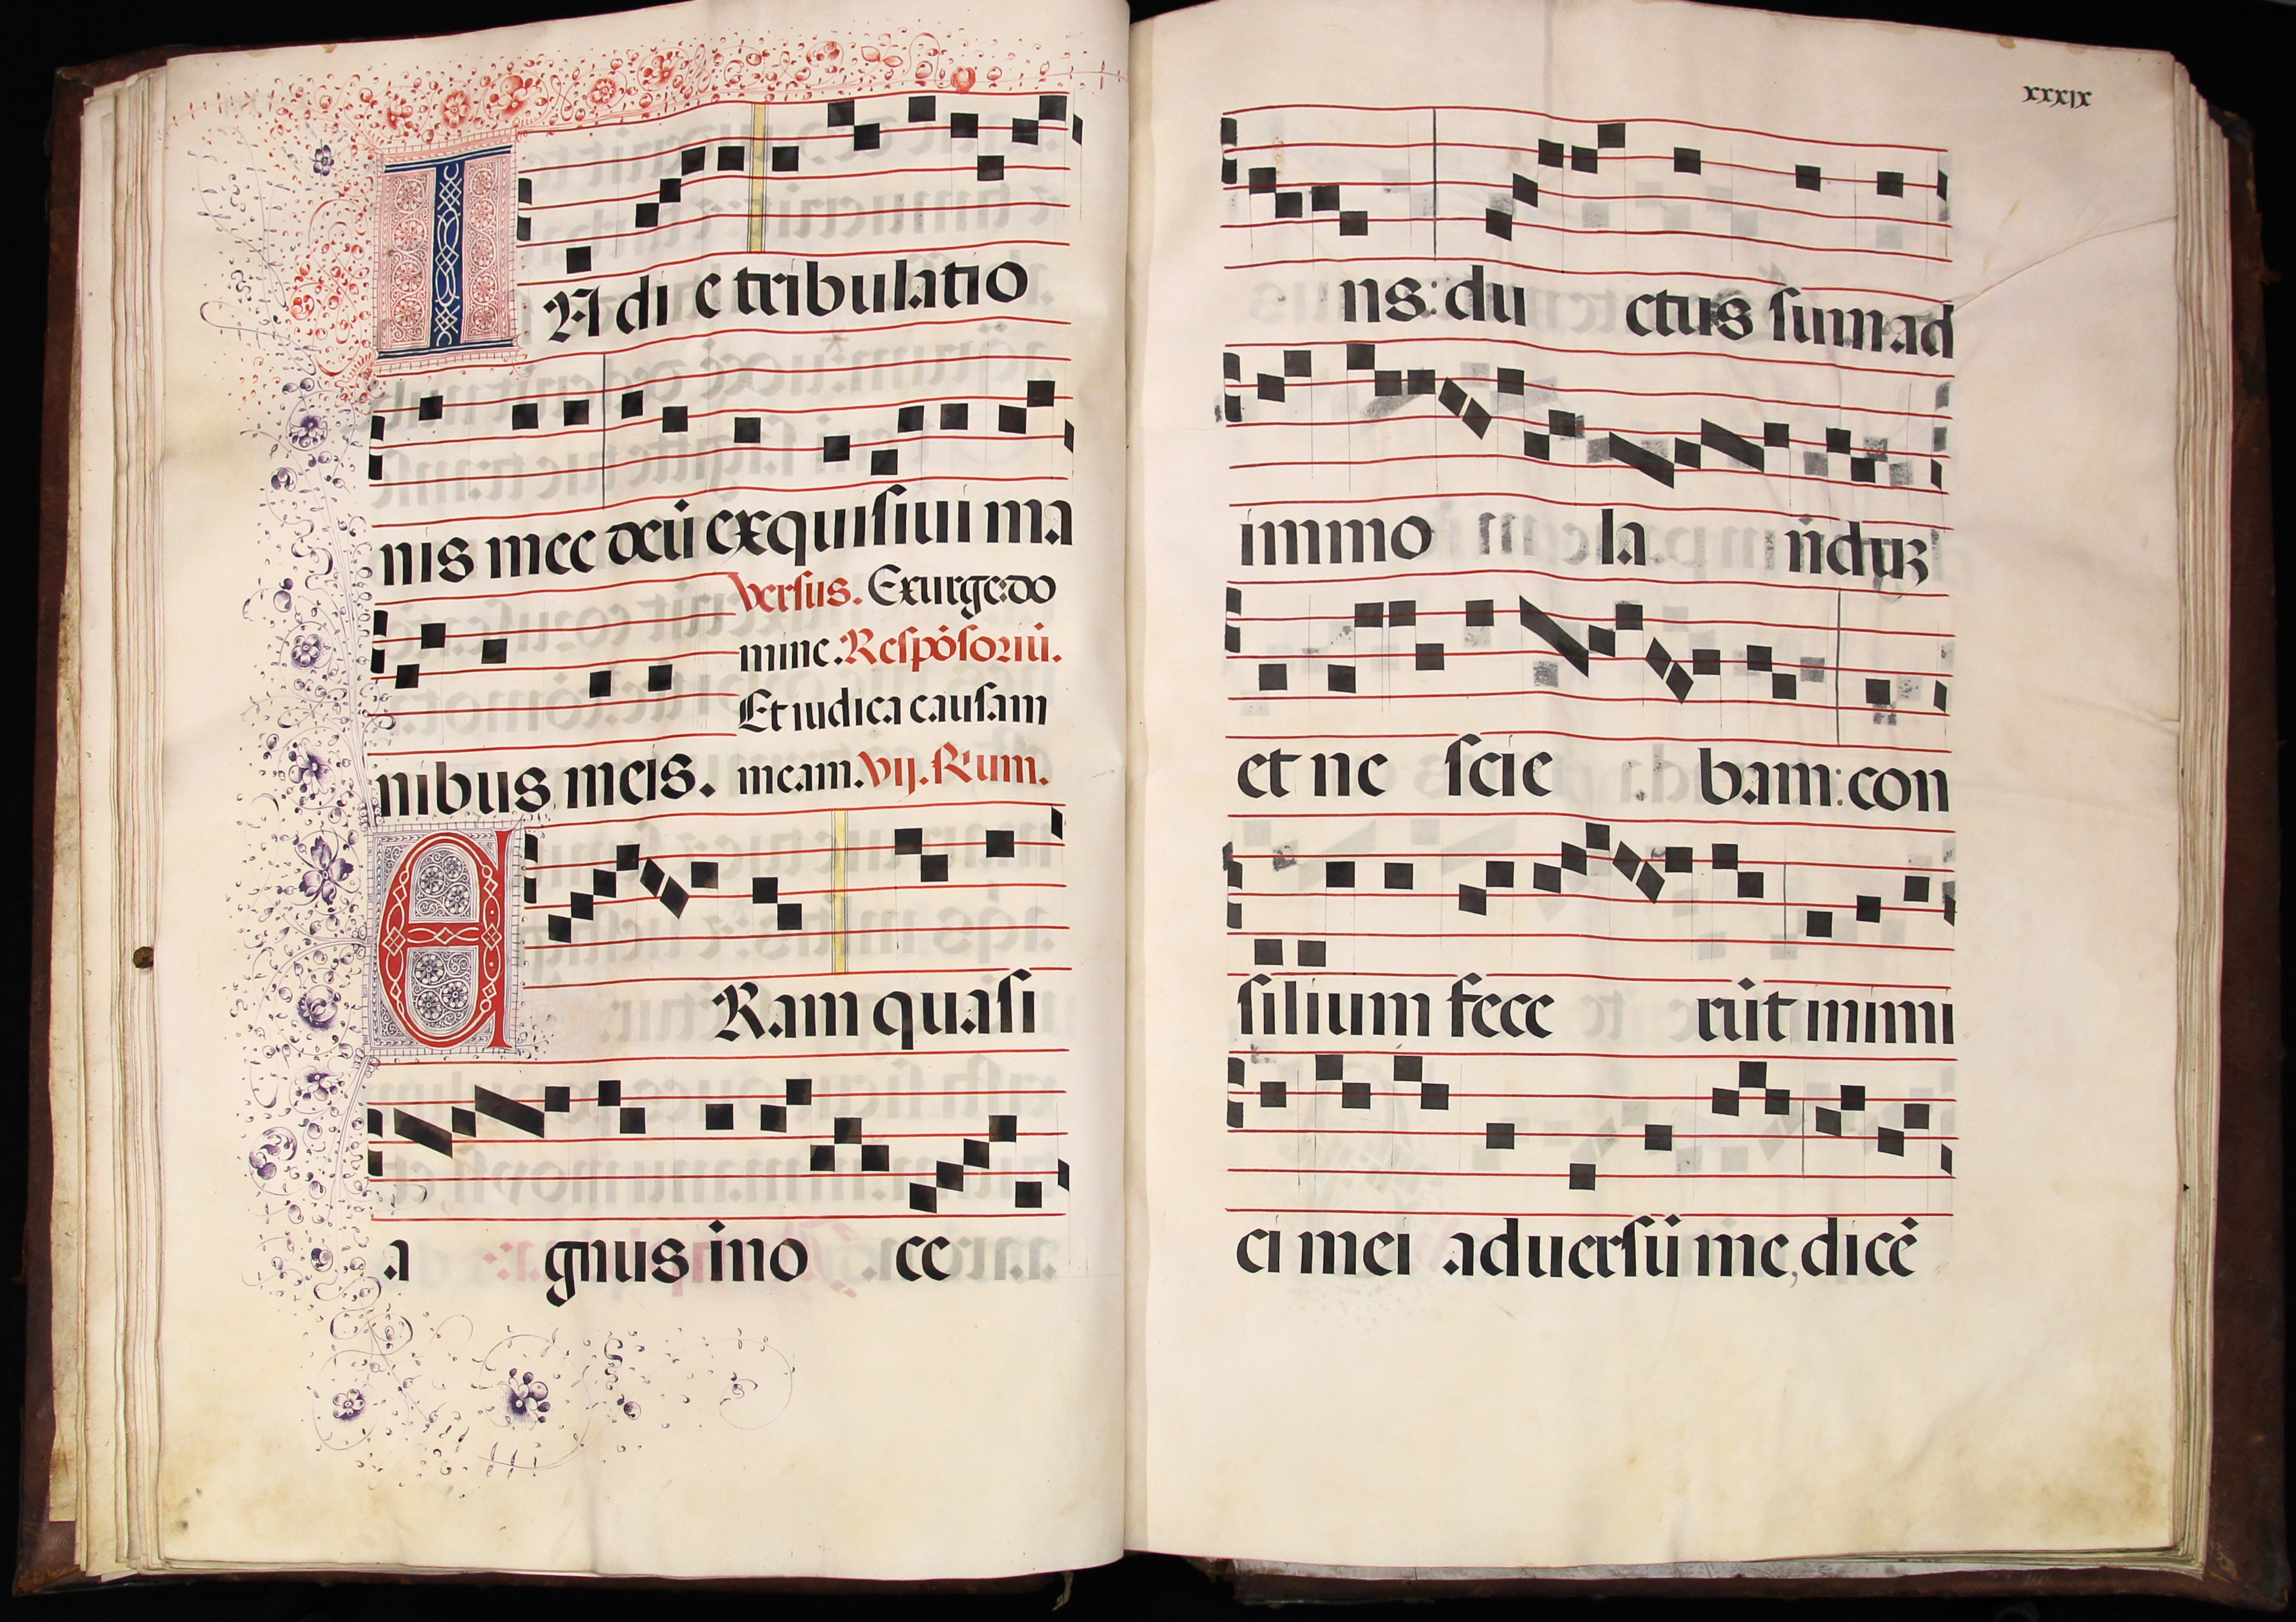 IN die tribulatio
nis mee deū exquisiui ma
Versus. Exurge: do
mine. Respōsoriū.
Et iudica causam
nibus meis. meam. Vij. Rum.
ERam quasi
a gnus ino ce
xxxix
ns: du ctus sum ad
immo la nduʒ
et ne scie bam: con
silium fece rūt inimi
ci mei aduersū me, dicē